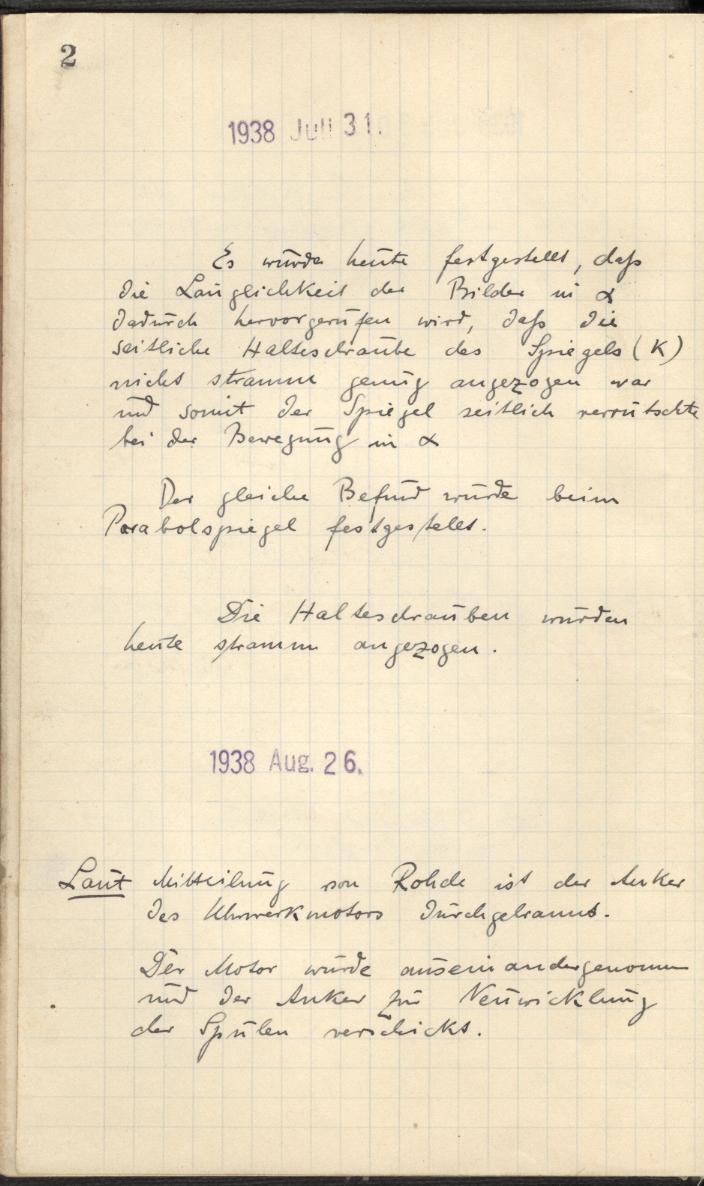 2
1938 Juli 31.
Es wurde heute festgestellt, daß
die Länglichkeit der Bilder in α
dadurch hervorgerufen wird, daß die
seitliche Halteschraube des Spiegels (K)
nicht stramm genug angezogen war
und somit der Spiegel seitlich verrutschte
bei der Bewegung in α
Der gleiche Befund wurde beim
Parabolspiegel festgestellt.
Die Halteschrauben wurden
heute stramm angezogen.
1938 Aug. 26.
Laut Mitteilung von Rohde ist der Anker
des Uhrwerkmotors durchgebrannt.
Der Motor wurde auseinandergenommen
und der Anker zur Neuwicklung
der Spulen verschickt.